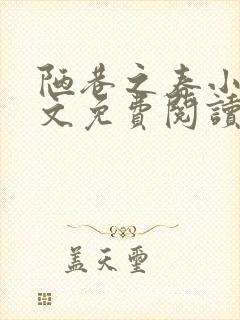 陋巷之春小
文免費閱讀
盖天璽